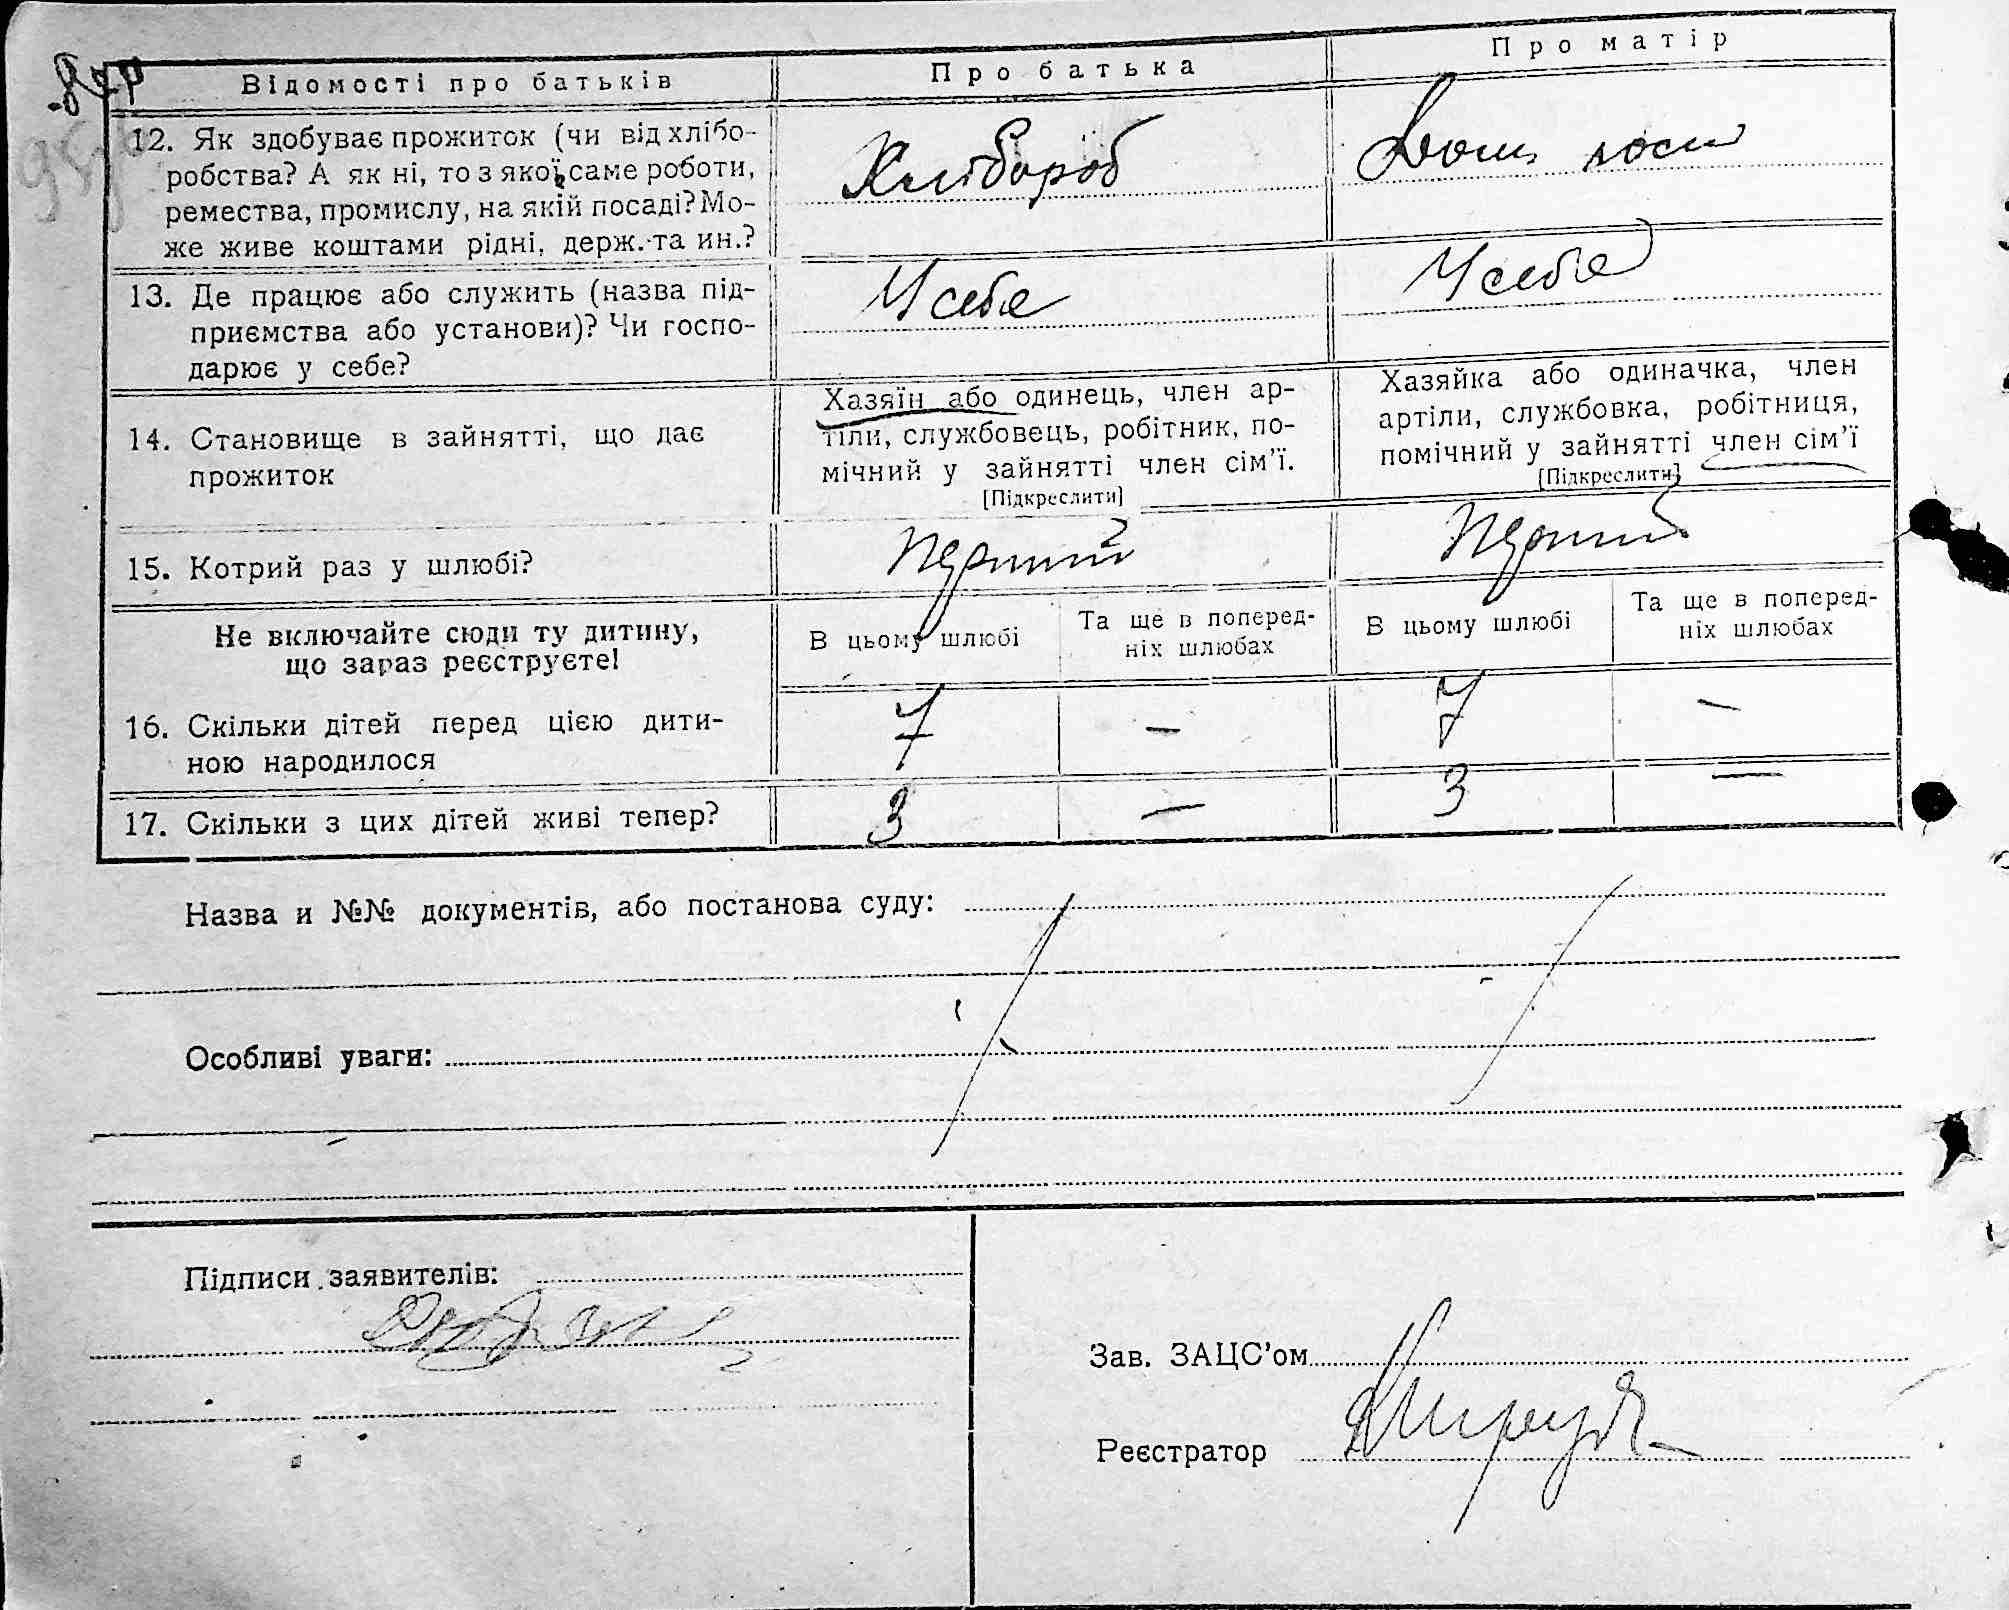 Відомості про батьків
Про батька
Про матір
12. Як здобуває прожиток (чи від хлібо-
робства? А як ні, то з якої саме роботи,
ремества, промислу, на якій посаді? Мо-
же живе коштами рідні, держ. та ин.?
Хлібороб
Дом. госп
13. Де працює або служить (назва під-
приємства або установи)? Чи госпо-
дарює у себе?
У себе
У себе
14. Становище в зайнятті, що дає
прожиток
Хазяїн або одинець, член ар-
тіли, службовець, робітник, по-
мічний у зайнятті член сім'ї.
[Підкреслити]
Хазяйка або одиначка, член
артіли, службовка, робітниця,
помічний у зайнятті член сім'ї
[Підкреслити]
15. Котрий раз у шлюбі?
Перший
Перший
Не включайте сюди ту дитину,
що зараз реєструєте!
В цьому шлюбі
Та ще в поперед-
ніх шлюбах
В цьому шлюбі
Та ще в поперед-
ніх шлюбах
16. Скільки дітей перед цією дити-
ною народилося
7 – 7 –
17. Скільки з цих дітей живі тепер?
3 – 3 –
Назва и №№ документів, або постанова суду:
Особливі уваги:
Підписи заявителів:
Зав. ЗАЦС'ом
Реєстратор